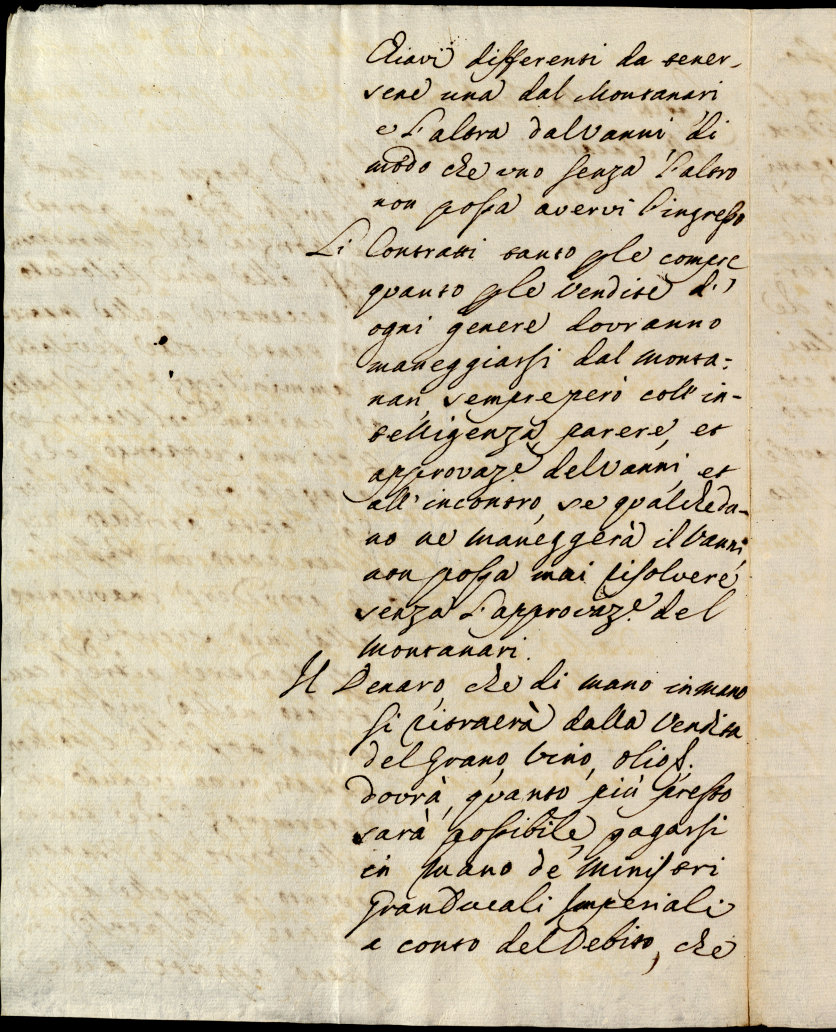 Chiavi differenti da tener-
sene una dal Montanari
e l'altra dal Vanni di
modo che uno senza l'altro
non possa avervi l'ingresso
Li Contratti tanto p le compre
quanto p le Vendite d'
ogni genere dovranno
maneggiarsi dal Monta:
nari sempre però coll' in-
telligenza, parere, et
approvaz.e del Vanni, et
all'incontro, se qualchedu-
no ne maneggerà il Vanni,
non possa mai risolvere
senza l'approvaz.e del
Montanari.
Il Denaro, che di mano in mano
si ritraerà dalla Vendita
del Grano, Vino, olio
dovrà, quanto più presto
sarà possibile, pagarsi
in mano de' Ministri
GranDucali Imperiali
a conto del Debito, che